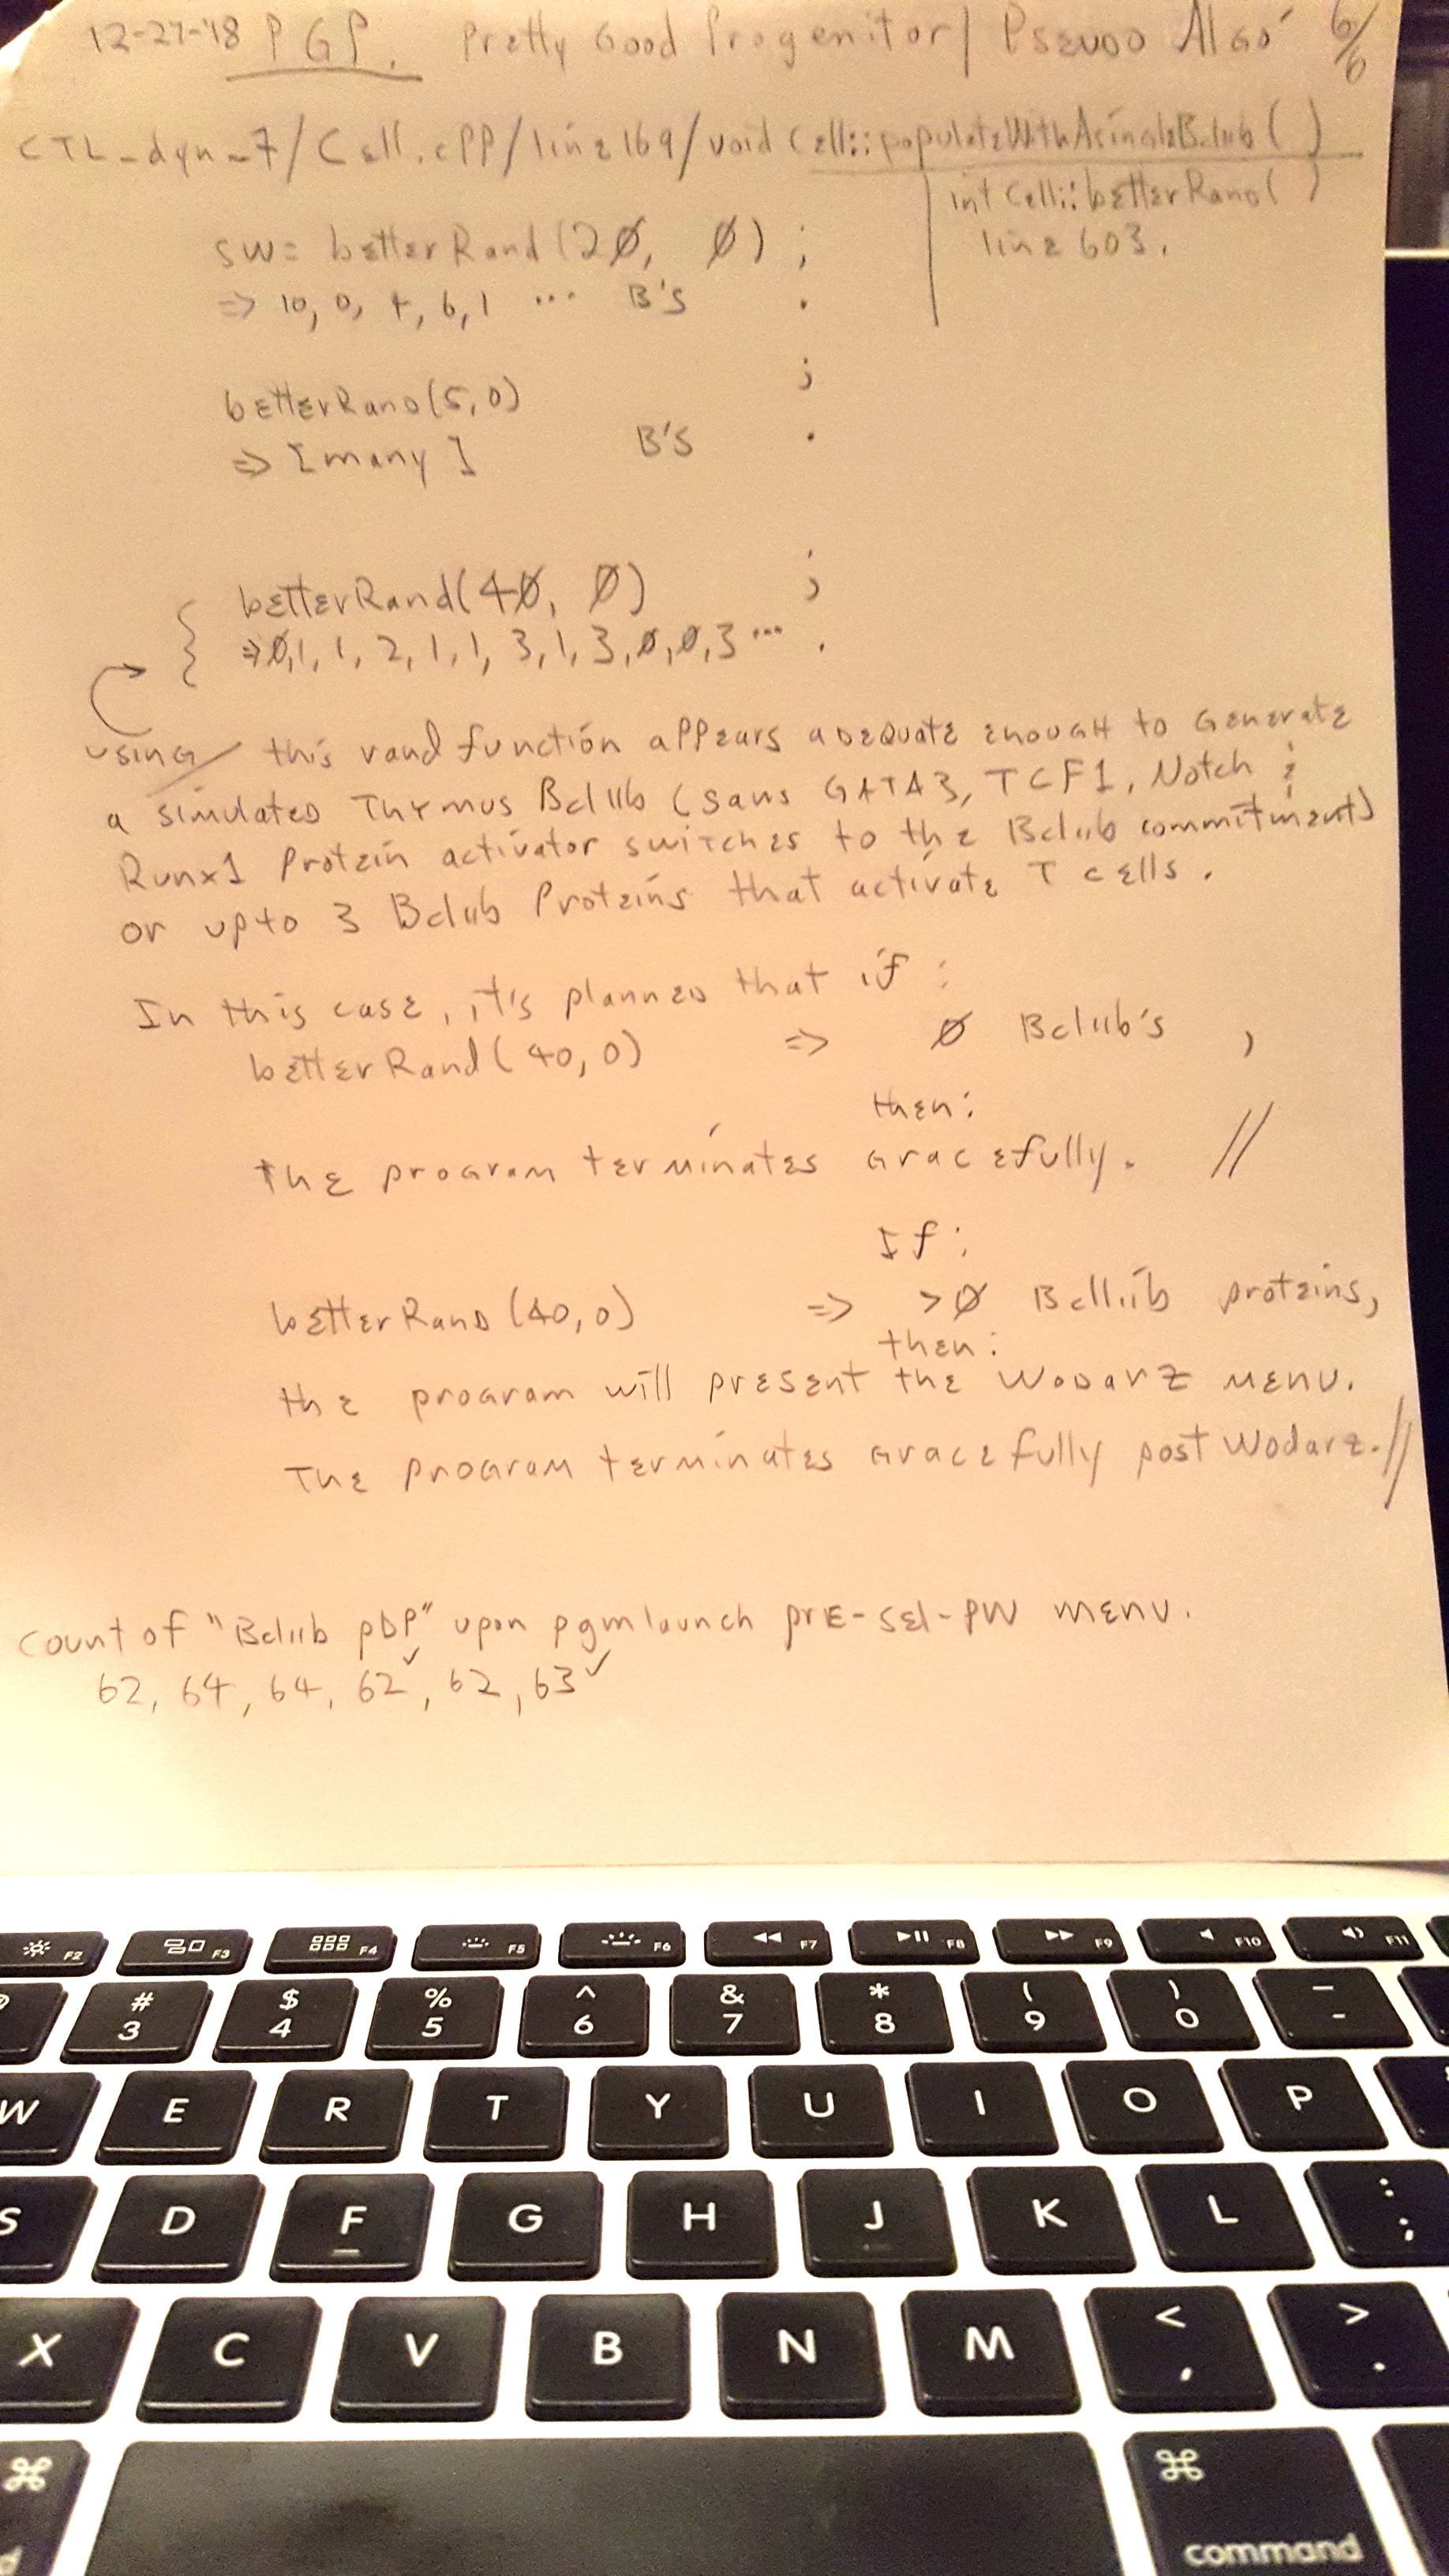 12-27-'18 PGP. Pretty Good Progenitor/ Pseudo Algo 6/6
CTL_dyn_7/Cell.cPP/line169/void Cell::populateWithAsingleBcl11b( )
int Cell::betterRand( )
line 603.
sw= betterRand(2Ø, Ø) ;
=> 10, 0, 4, 6, 1 ... B's .
betterRand(5,0) ;
=> [many] B's .
betterRand(4Ø, Ø) ;
=> Ø,1, 1, 2, 1, 1, 3, 1, 3, Ø, Ø, 3 ... .
using this rand function appears adequate enough to Generate
a simulated Thymus Bcl11b (sans GATA3, TCF1, Notch &
Runx1 Protein activator switches to the Bcl11b commitment)
or upto 3 Bcl11b Proteins that activate T cells.
In this case, it's planned that if :
betterRand(40,0) => Ø Bcl11b's ,
then:
The program terminates Gracefully. //
If:
betterRand (40,0) => >Ø Bcl11b proteins,
then:
the program will present the Wodarz menu.
The program terminates Gracefully post Wodarz. //
count of "Bcl11b pDP" upon pgmlaunch prE-sel-PW menu.
62, 64, 64, 62✓, 62, 63✓
F2 F3 F4 F5 F6 F7 F8 F9 F10 F11
# 3 $ 4 % 5 ^ 6 & 7 * 8 ( 9 ) 0 _ -
W E R T Y U I O P
S D F G H J K L : ;
X C V B N M < , > .
⌘ ⌘ command